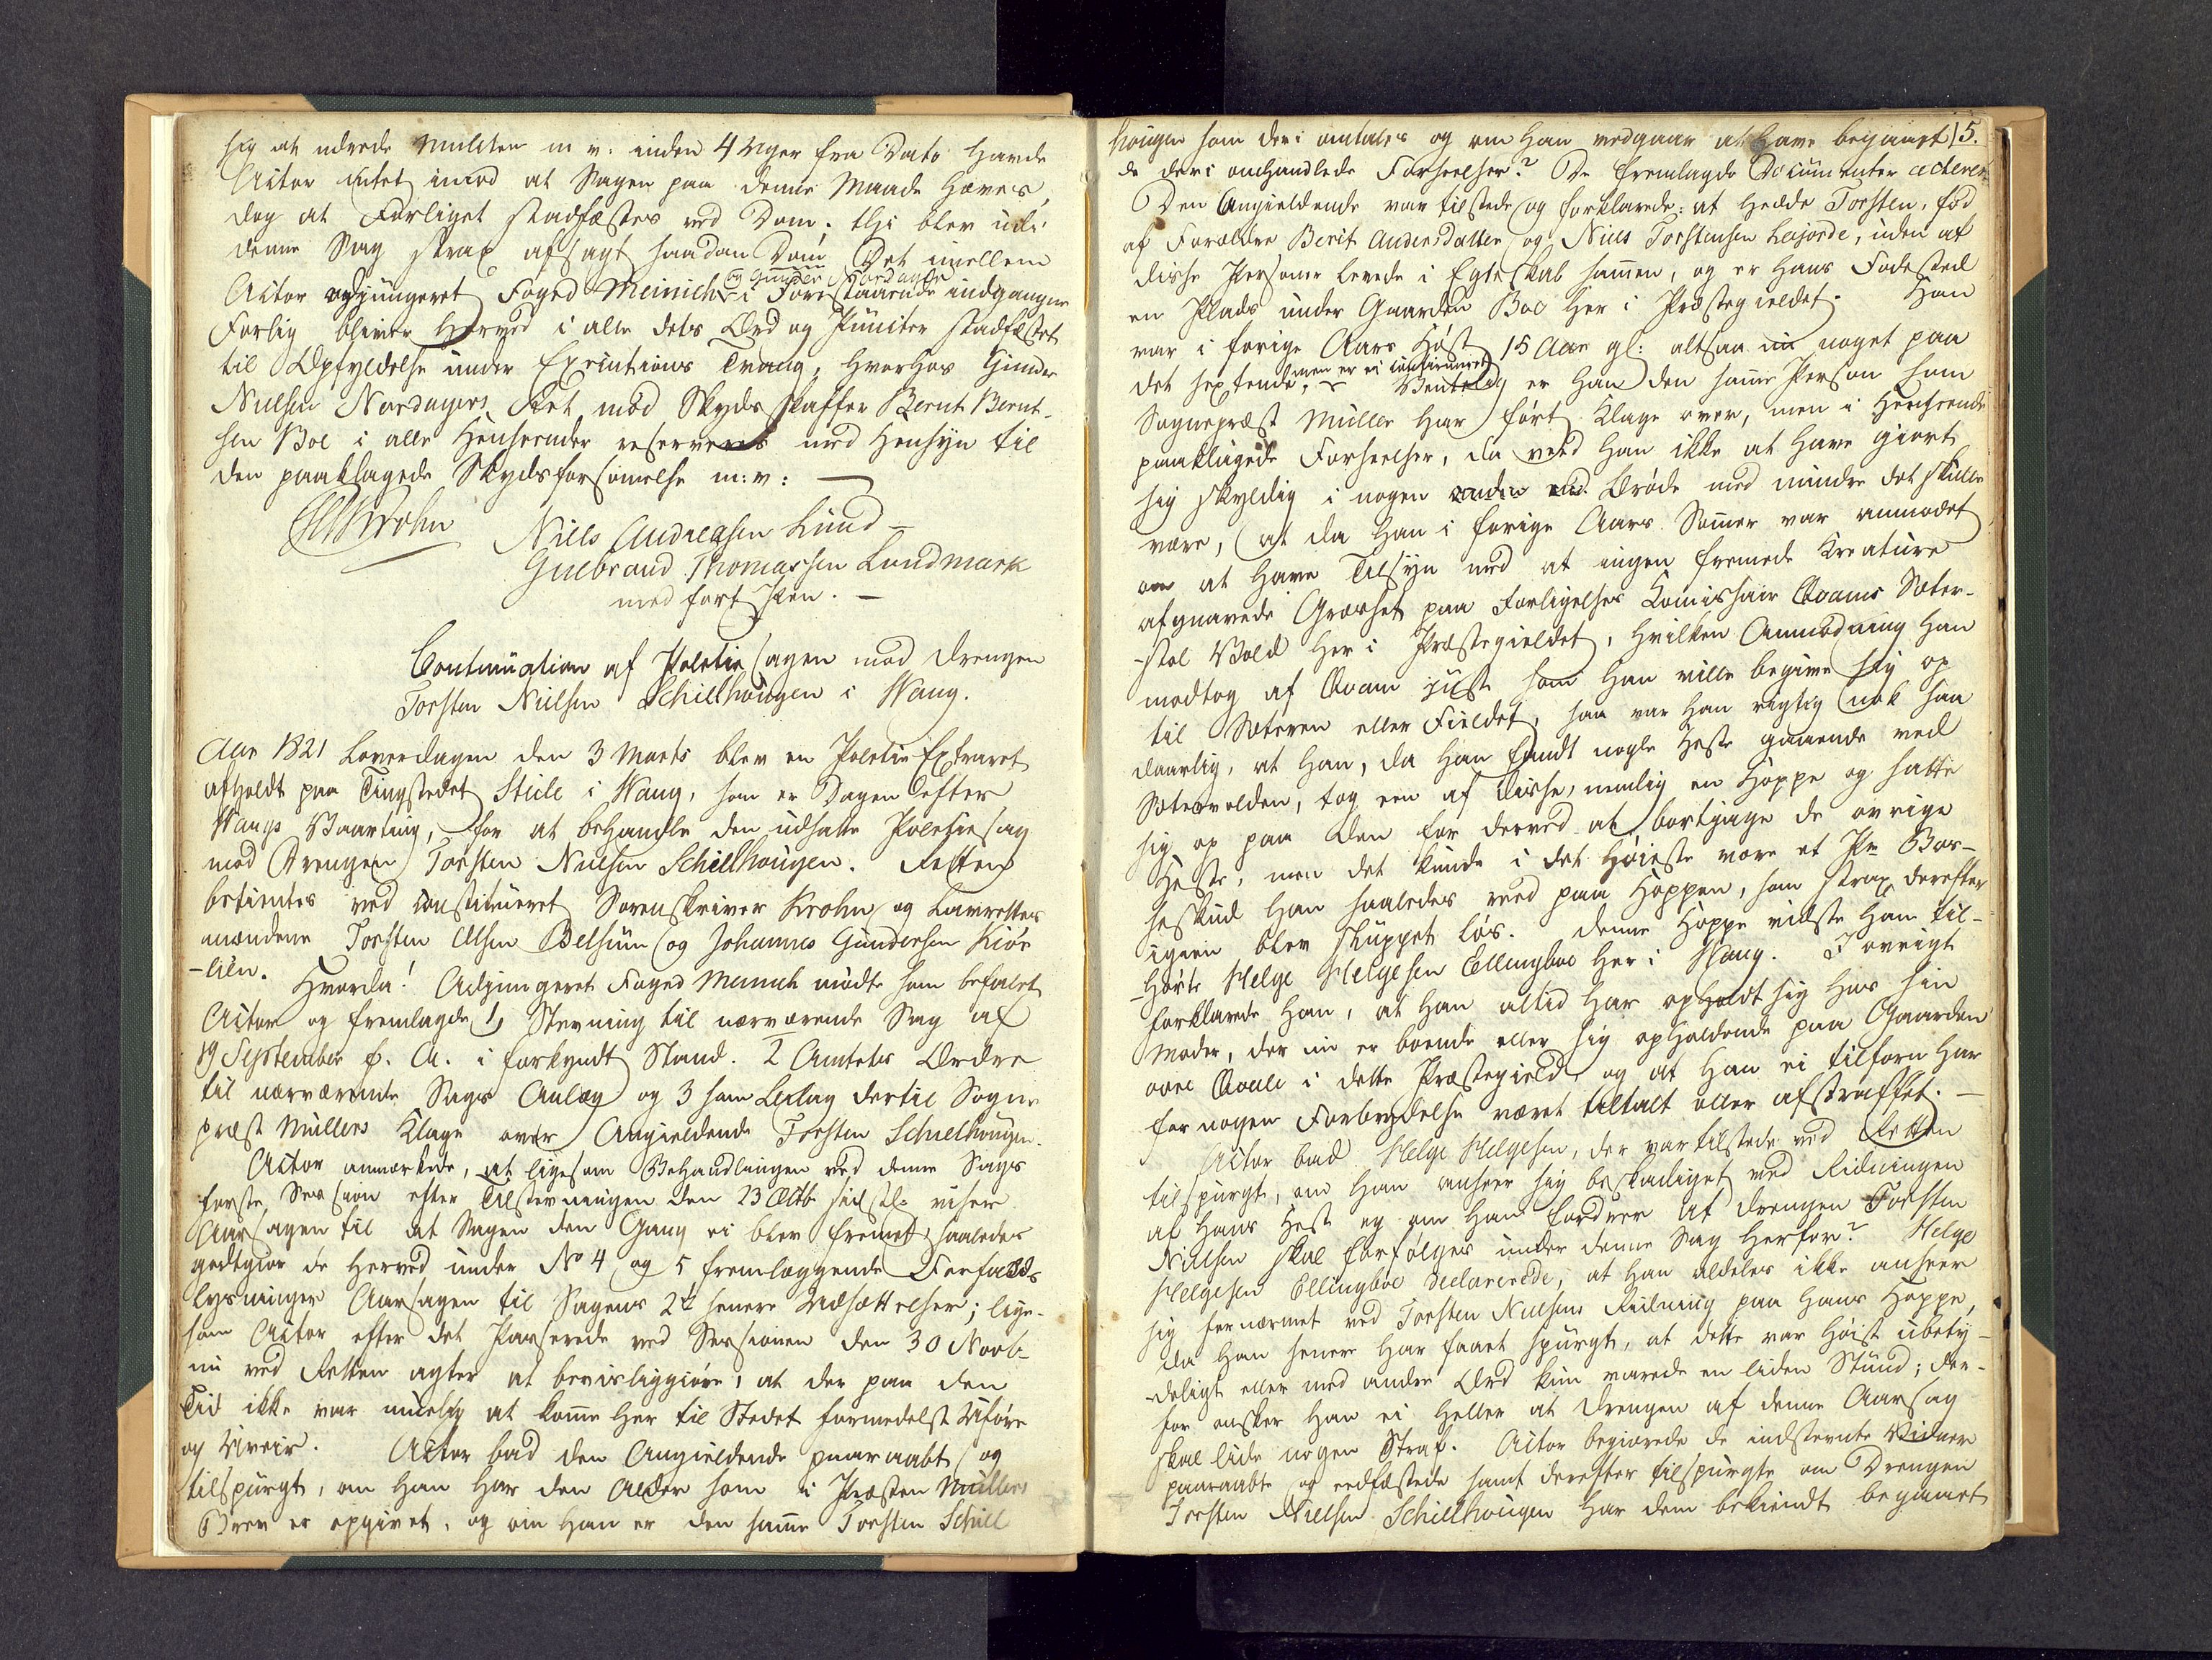 sig at udrede Mulcten m v: inden 4 Uger fra Dato havde
Actor intet imod at Sagen paa denne Maade hæves,
dog at Forliget stadfæstes ved Dom; thi blev udi
denne Sag strax afsagt saadan Dom Det imellem
og Gunder Nordager
Actor adjungeret Foged Meinich i Forestaaende indgangne
Forlig bliver herved i alle dets Ord og Puncter stadfæstet
til Opfyldelse under Executions Tvang, hvorhos Gunder
Nielsen Nordagers Ret mod Skydsskaffer Bernt Bernt-
sen Boe i alle Henseender reserveres med Hensyn til
den paaklagede Skydsforsømelse m: v:
Krohn Niels Andreasen Lund
Gulbrand Thomassen Lundmark
med ført Pen.
Continuation af Politie Sagen mod Drengen
Torsten Nielsen Schellhougen i Wang.
Aar 1821 Løverdagen den 3 Marts blev en Politie Extraret
afholdt paa Tingstedet Steile i Wang, som er Dagen efter
Wangs Vaarting, for at behandle den udsatte Politiesag
mod Drengen Torsten Nielsen Schellhougen. Retten
betientes ved constitueret Sorenskriver Krohn og Laurettes
mændene Torsten Olsen Belsum og Johannes Gundersen Kiør
-lien. Hvorda! Adjungeret Foged Meinich mødte som befalet
Actor og fremlagde 1, Stevning til nærværende Sag af
19 September f. A. i forkyndt Stand. 2 Amtets Ordre
til nærværende Sags Anlæg og 3 som Bilag dertil Sogne
præst Müllers Klage over Angieldende Torsten Schellhougen.
Actor anmærkede, at ligesom Behandlingen ved denne Sags
første Session efter Tilstevningen den 23 Octb sidstl: viser
Aarsagen til at Sagen den Gang ei blev fremet, saaledes
godtgiør de herved under No 4 og 5 fremlæggende Forfalds
lysninger Aarsagen til Sagens 2de senere Udsættelser; lige-
som Actor efter det Passerede ved Sessionen den 30 Novb
nu ved Retten agter at bevisliggiøre, at der paa den
Tid ikke var muelig at komme her til Stedet formedelst Uføre
og Uveir. Actor bad den Angieldende paaraabt og
tilspurgt, om han har den Alder som i Præsten Müllers
Brev er opgivet, og om han er den samme Torsten Schell
hougen som deri omtales og om han vedgaar at have begaaet 15.
de deri omhandlede Forseelser? De fremlagde Documenter acteres
Den Angieldende var tilstede og forklarede: at hedde Torsten, fød
af Forældre Berit Andersdatter og Niels Torstensen Leejorde, uden at
disse Personer levede i Egteskab sammen, og er hans Fødested
en Plads under Gaarden Boe her i Præstegieldet. Han
var i forige Aars Høst 15 Aar gl: altsaa nu noget paa
men er ei confirmeret
det sextende, er han den samme Person som
Sognepræst Müller har ført Klage over, men i Henseende
paaklagede Forseelser, da veed han ikke at have giort
sig skyldig i nogen anden end Brøde med mindre det skulle
være, at da han i forige Aars Sommer var anmodet
om at have Tilsyn med at ingen fremmede Kreature
afgnavede Græsset paa Forligelses Komissair Qvams Sæter-
-stol Vold her i Præstegieldet, hvilken Anmodning han
modtog af Qvam just som han ville begive sig op
til Sæteren eller Fieldet, saa var han rigtig nok saa
daarlig, at han, da han fandt nogle Heste gaaende ved
Sætervolden, tog een af disse, nemlig en Hoppe og satte
sig op paa den for derved at bortjage de øvrige
Heste, men det kunde i det høieste være et Pr Bøs-
seskud han saaledes reed paa Hoppen, som strax derefter
igien blev sluppet løs. Denne Hoppe vidste han til-
-hørte Helge Helgesen Ellingboe her i Wang. I øvrigt
forklarede han, at han altid har opholdt sig hos sin
Moder, der nu er boende eller sig opholdende paa Gaarden
øvre Qvale i dette Præstegield, og at han ei tilforn har
for nogen Forbrydelse været tiltalt eller afstraffet.
Actor bad Helge Helgesen, der var tilstede ved Retten
tilspurgt, om han anseer sig beskadiget ved Ridningen
af hans Hest og om han fordrer at Drengen Torsten
Nielsen skal forfølges under denne Sag herfor? Helge
Helgesen Ellingboe declarerede, at han aldeles ikke anseer
sig fornærmet ved Torsten Nielsens Ridning paa hans Hoppe,
da han senere har faaet spurgt, at dette var høist ubety-
-deligt eller med andre Ord kun varede en liden Stund; der-
for ønsker han ei heller at Drengen af denne Aarsag
skal lide nogen Straf. Actor begiærede de indstevnte Vidner
paaraabte og eedfæstede samt derefter tilspurgte om Drengen
Torsten Nielsen Schellhougen har dem bekiendt begaaet